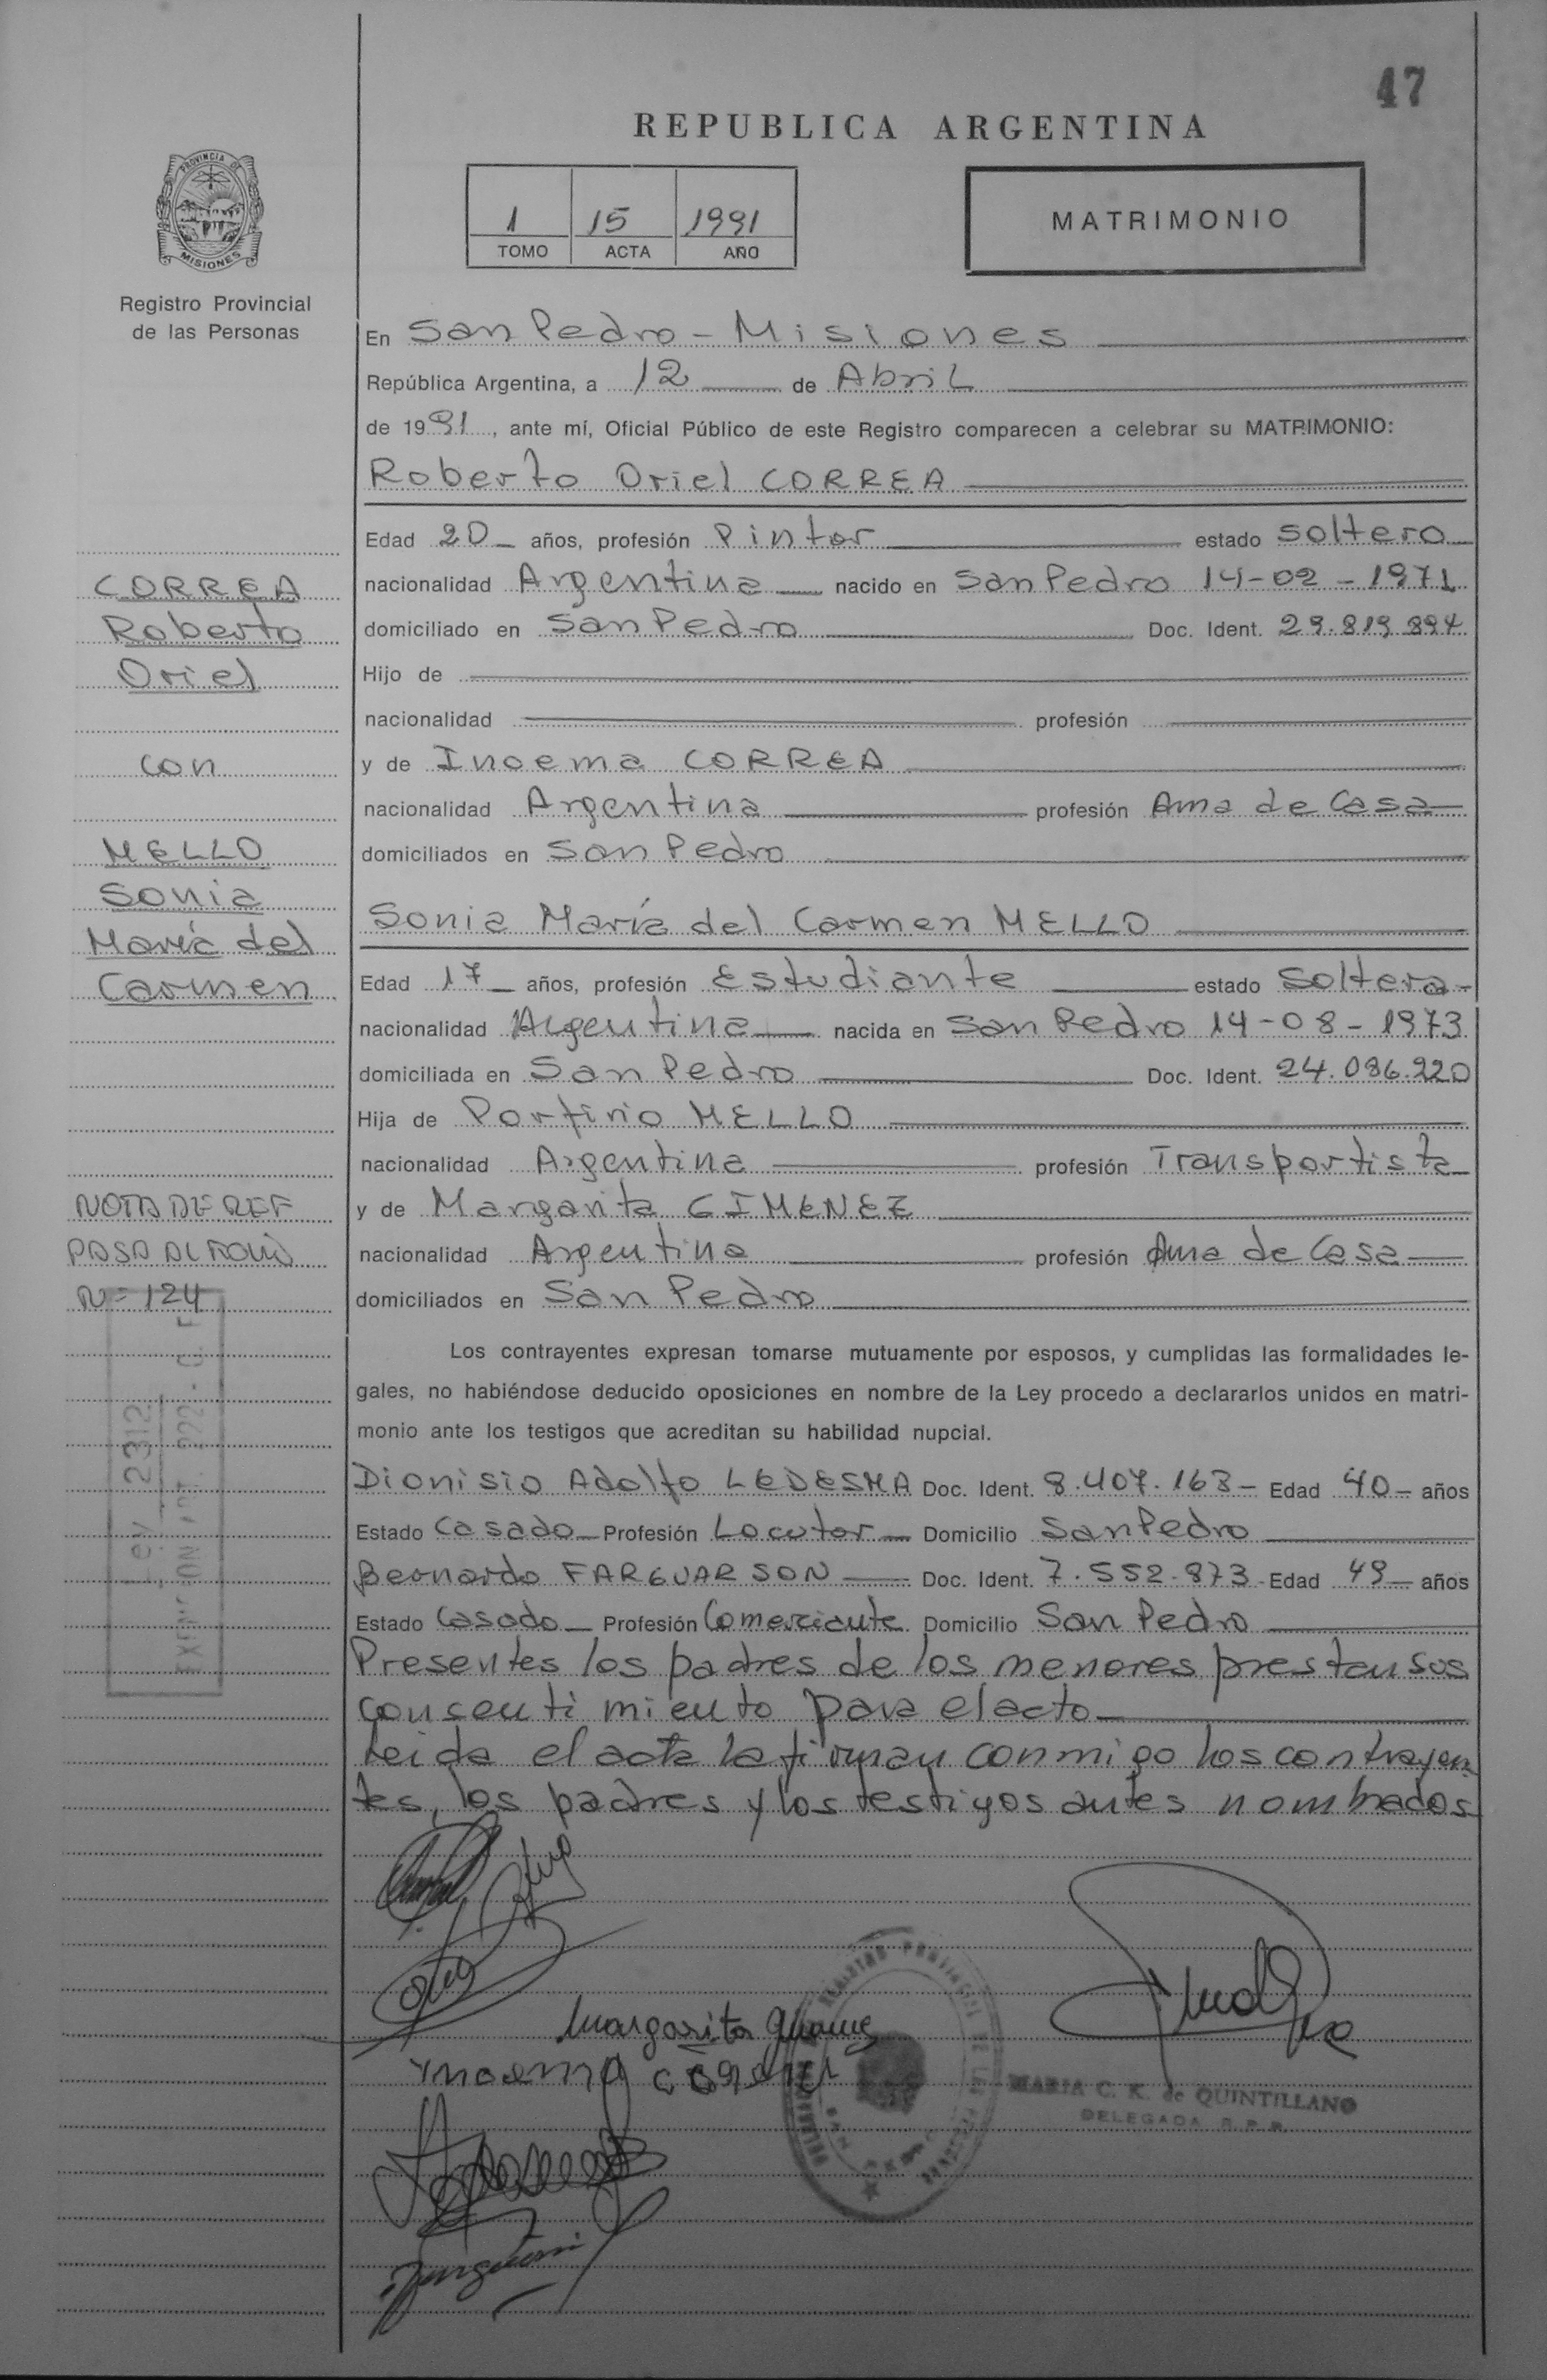 47
REPUBLICA ARGENTINA
PROVINCIA DE
MISIONES
1 15 1991
TOMO ACTA AÑO
MATRIMONIO
Registro Provincial
de las Personas
En San Pedro - Misiones
República Argentina, a 12 de Abril
de 1991, ante mí, Oficial Público de este Registro comparecen a celebrar su MATRIMONIO:
Roberto Oriel CORREA
Edad 20 años, profesión Pintor estado Soltero
nacionalidad Argentina nacido en San Pedro 14-02-1971
domiciliado en San Pedro Doc. Ident. 29.819.894
Hijo de
nacionalidad profesión
y de Inoema CORREA
nacionalidad Argentina profesión Ama de Casa
domiciliados en San Pedro
Sonia María del Carmen MELLO
Edad 17 años, profesión Estudiante estado Soltera
nacionalidad Argentina nacida en San Pedro 14-08-1973
domiciliada en San Pedro Doc. Ident. 24.086.220
Hija de Porfirio MELLO
nacionalidad Argentina profesión Transportista
y de Margarita GIMENEZ
nacionalidad Argentina profesión Ama de Casa
domiciliados en San Pedro
CORREA
Roberto
Oriel
con
MELLO
Sonia
María del
Carmen
NOTA DE REF
PASA AL FOLIO
Nº 124
Ley 2312
Los contrayentes expresan tomarse mutuamente por esposos, y cumplidas las formalidades le-
gales, no habiéndose deducido oposiciones en nombre de la Ley procedo a declararlos unidos en matri-
monio ante los testigos que acreditan su habilidad nupcial.
Dionisio Adolfo LEDESMA Doc. Ident. 8.407.163 - Edad 40 años
Estado Casado Profesión Locutor Domicilio San Pedro
Bernardo FARGUARSON Doc. Ident. 7.552.873 - Edad 49 años
Estado Casado Profesión Comerciante Domicilio San Pedro
Presentes los padres de los menores prestan sus
consentimiento para el acto
Leida el acta la firman conmigo los contrayen
tes, los padres y los testigos antes nombrados
Margarita
Ynoema
MARIA C. K. de QUINTILLANO
DELEGADA R.P.P.